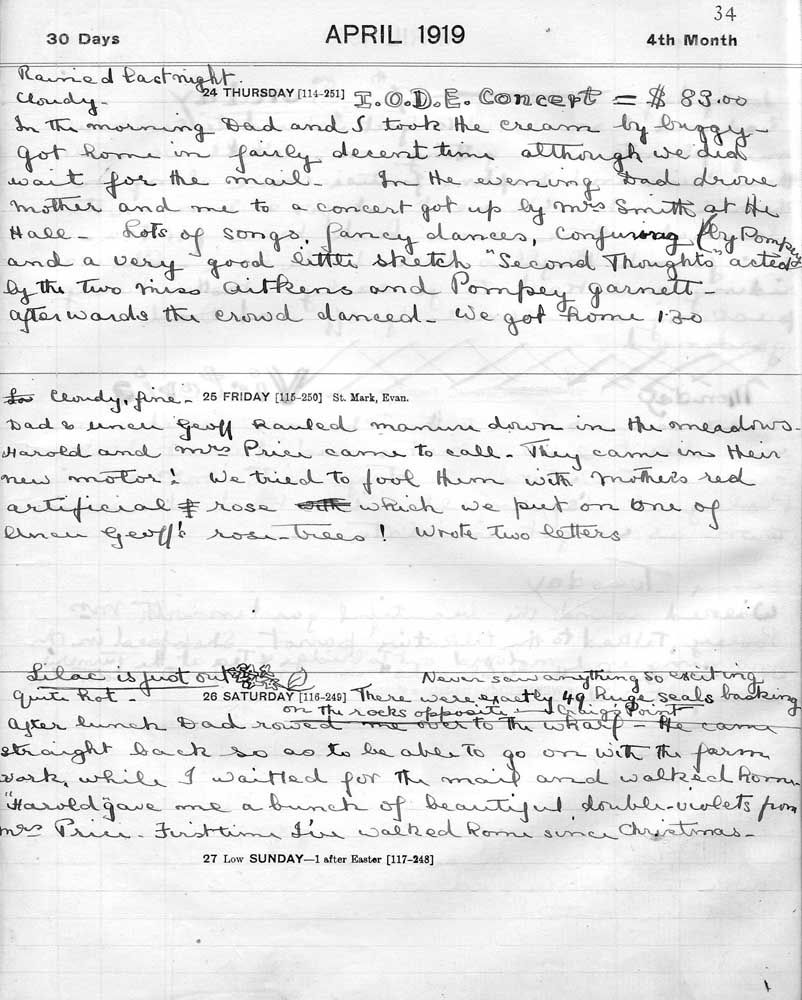 34
30 Days APRIL 1919 4th Month
Rained last night.
Cloudy- 24 THURSDAY [114-251] I.O.D.E. Concert = $ 83.00
In the morning Dad and I took the cream by buggy-
Got home in fairly decent time although we did
wait for the mail- In the evening Dad drove
Mother and me to a concert got up by Mrs Smith at the
Hall- Lots of songs, fancy dances, conjuring (by Pompey)
and a very good little sketch "Second Thoughts" acted
by the two Miss Aitkens and Pompey Garnett-
Afterwards the crowd danced- We got home 1.30
Cloudy, fine- 25 FRIDAY [115-250] St. Mark, Evan.
Dad & Uncle Geoff hauled manure down in the meadows-
Harold and Mrs Price came to call- They came in their
new motor! We tried to fool them with Mother's red
artificial rose with which we put on one of
Uncle Geoff's rose-trees! Wrote two letters
Lilac is just out Never saw anything so exciting
Quite hot- 26 SATURDAY [116-249] There were exactly 49 huge seals basking
on the rocks opposite Point
After lunch Dad rowed me over to the wharf- He came
straight back so as to be able to go on with the farm
work, while I waited for the mail and walked home-
"Harold" gave me a bunch of beautiful double-violets from
Mrs Price- First time I've walked home since Christmas-
27 Low SUNDAY—1 after Easter [117-248]